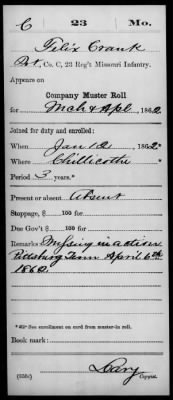 C 23 Mo.
Felix Crank
Pvt., Co. C, 23 Reg't Missouri Infantry.
Appears on
Company Muster Roll
for Mch & Apl, 1862
Joined for duty and enrolled:
When Jan 12, 1862
Where Chillicothe
Period 3 years.*
Present or absent Absent
Stoppage, $ 100 for
Due Gov't $ 100 for
Remarks: Missing in action
Pittsburg Tenn April 6th
1862.
*See enrollment on card from muster-in roll.
Book mark:
(358c) Copyist.